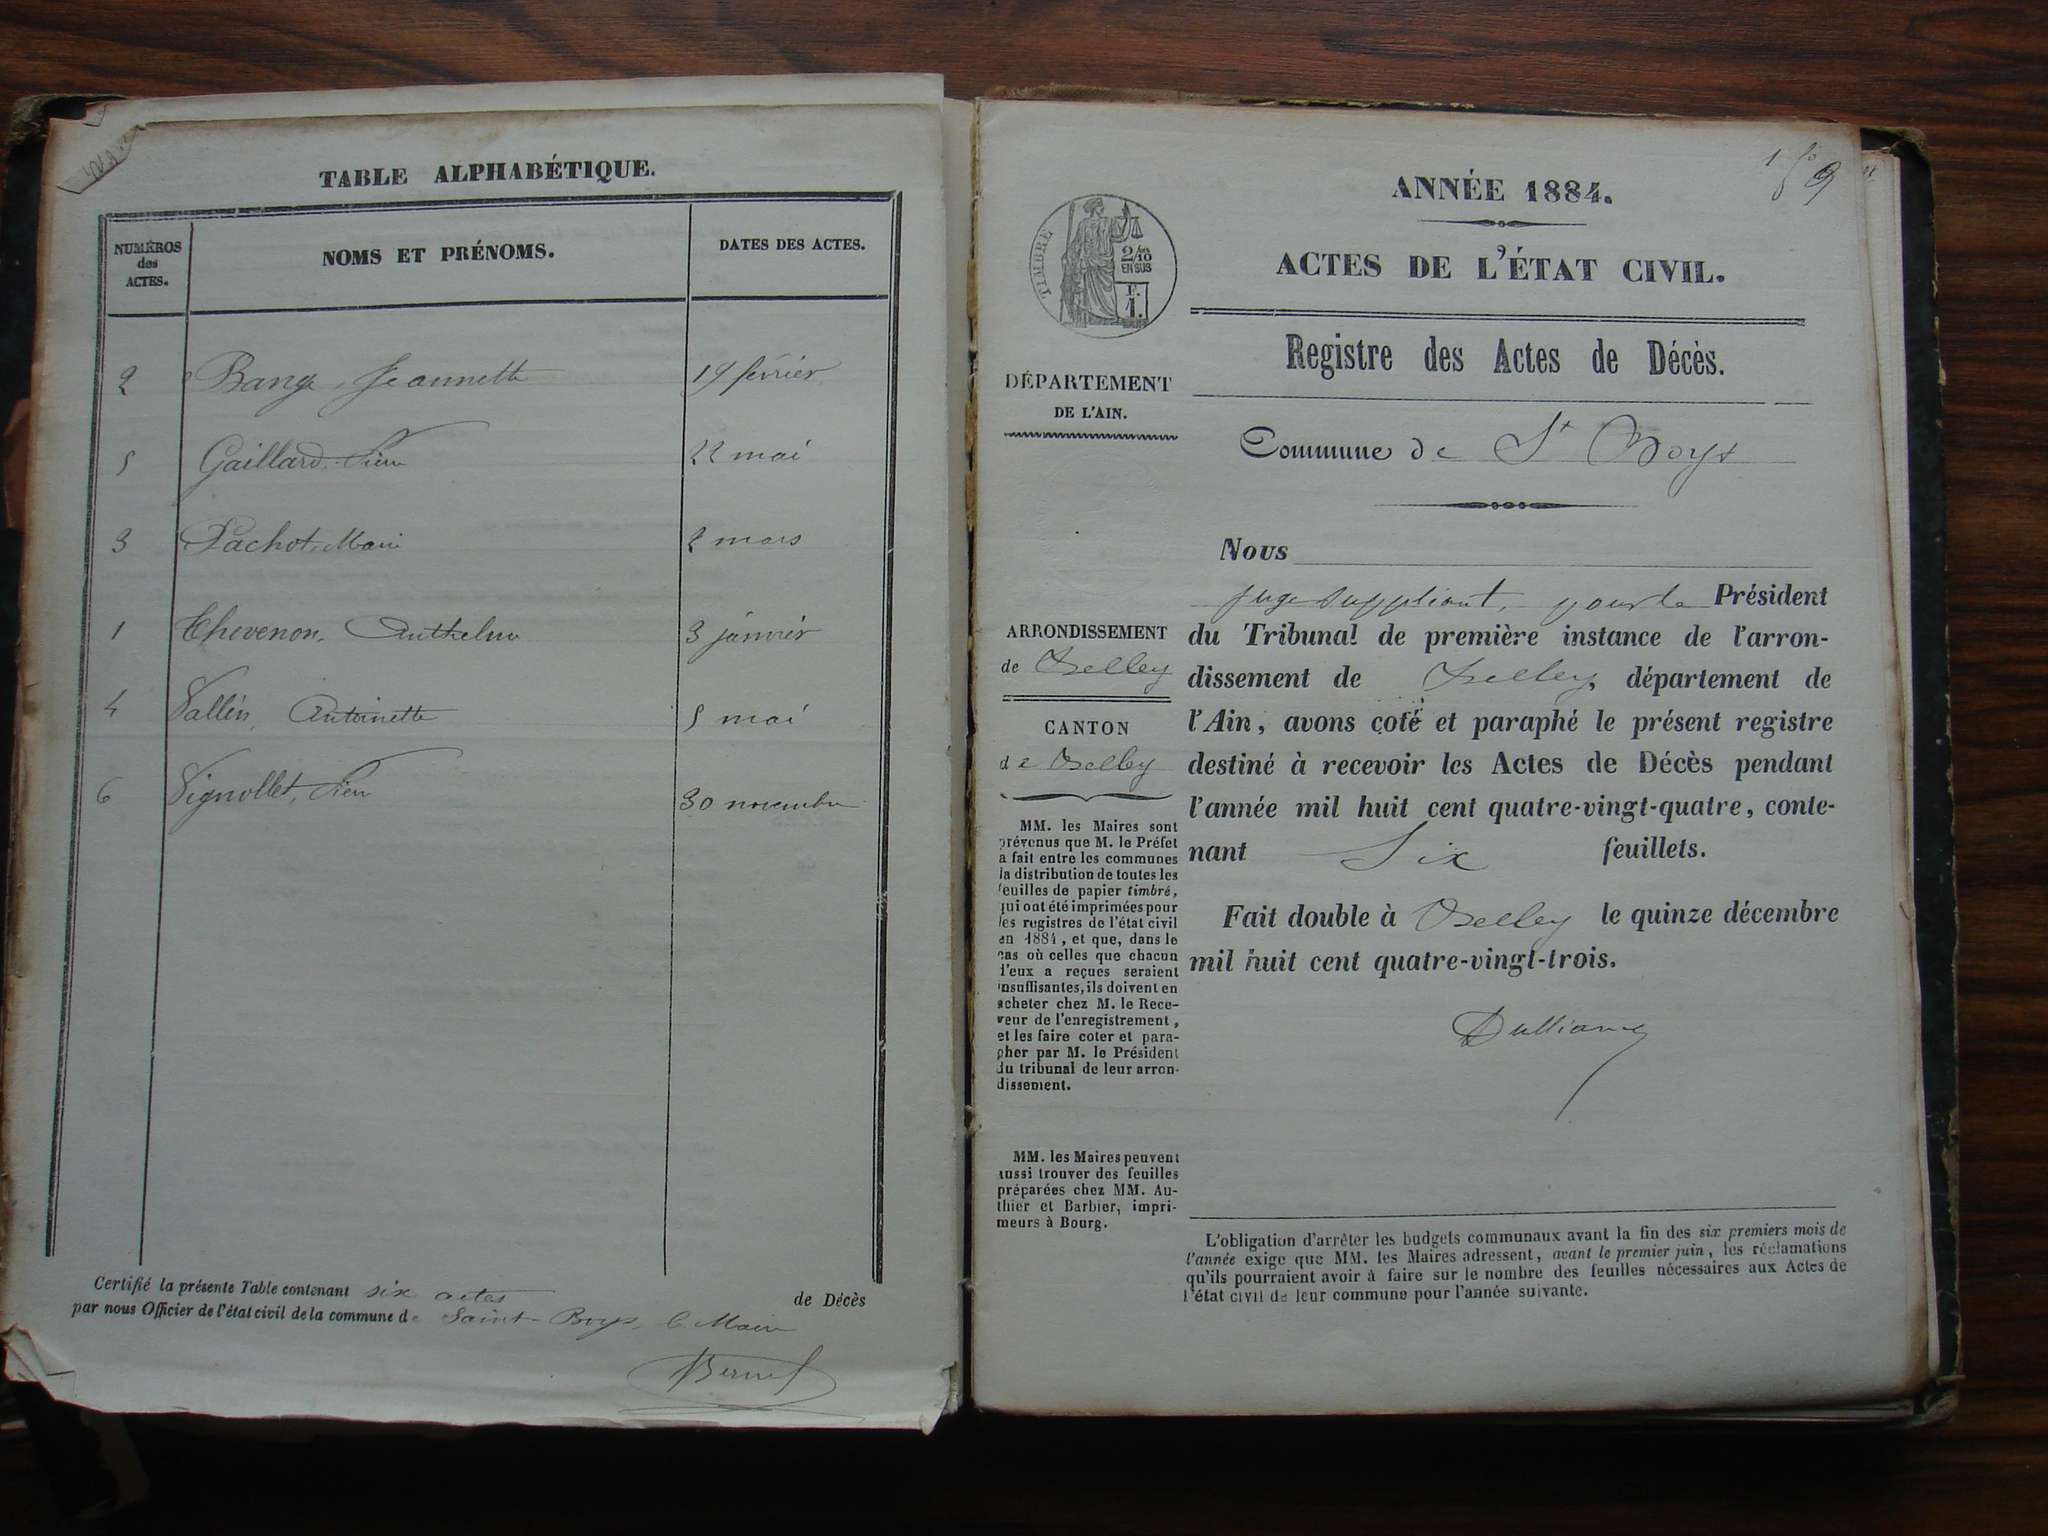 TABLE ALPHABÉTIQUE.
NUMÉROS des ACTES.
NOMS ET PRÉNOMS.
DATES DES ACTES.
2 Bange Jeannette 19 février
5 Gaillard Pierre 22 mai
3 Pachot Marie 2 mars
1 Thevenon, Anthelme 3 janvier
4 Vallin, Antoinette 5 mai
6 Vignollet, Pierre 30 novembre
Certifié la présente Table contenant six actes de Décès
par nous Officier de l'état civil de la commune de Saint-Boys, le Maire
ANNÉE 1884.
ACTES DE L'ÉTAT CIVIL.
TIMBRE
2/10
EN SUS
F.
1.
Registre des Actes de Décès.
DÉPARTEMENT
DE L'AIN.
Commune de St Boys
Nous
juge suppléant, pour le Président
du Tribunal de première instance de l'arron-
dissement de Belley, département de
l'Ain, avons coté et paraphé le présent registre
destiné à recevoir les Actes de Décès pendant
l'année mil huit cent quatre-vingt-quatre, conte-
nant Six feuillets.
Fait double à Belley le quinze décembre
mil huit cent quatre-vingt-trois.
ARRONDISSEMENT
de Belley
CANTON
de Belley
MM. les Maires sont
prévenus que M. le Préfet
a fait entre les communes
la distribution de toutes les
feuilles de papier timbré,
qui ont été imprimées pour
les registres de l'état civil
en 1884, et que, dans le
cas où celles que chacun
d'eux a reçues seraient
insuffisantes, ils doivent en
acheter chez M. le Rece-
veur de l'enregistrement,
et les faire coter et para-
pher par M. le Président
du tribunal de leur arron-
dissement.
MM. les Maires peuvent
aussi trouver des feuilles
préparées chez MM. Au-
thier et Barbier, impri-
meurs à Bourg.
L'obligation d'arrêter les budgets communaux avant la fin des six premiers mois de
l'année exige que MM. les Maires adressent, avant le premier juin, les réclamations
qu'ils pourraient avoir à faire sur le nombre des feuilles nécessaires aux Actes de
l'état civil de leur commune pour l'année suivante.